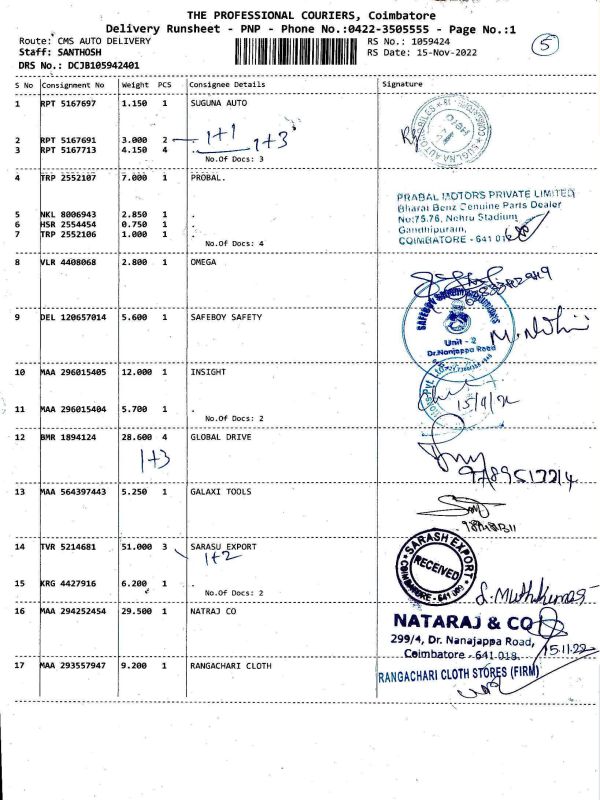 THE PROFESSIONAL COURIERS, Coimbatore
Delivery Runsheet - PNP - Phone No.:0422-3505555 - Page No.:1
Route: CMS AUTO DELIVERY
RS No.: 1059424
5
Staff: SANTHOSH
RS Date: 15-Nov-2022
DRS No.: DCJB105942401
S No Consignment No Weight PCS Consignee Details Signature
1 RPT 5167697 1.150 1 SUGUNA AUTO
2 RPT 5167691 3.000 2 1+1
3 RPT 5167713 4.150 4 . 1+3
No.Of Docs: 3
4 TRP 2552107 7.000 1 PROBAL.
PRABAL MOTORS PRIVATE LIMITED
Bharat Benz Genuine Parts Dealer
5 NKL 8006943 2.850 1 .
No:75,76, Nehru Stadium
6 HSR 2554454 0.750 1 .
Gandhipuram,
7 TRP 2552106 1.000 1 .
COIMBATORE - 641
No.Of Docs: 4
8 VLR 4408068 2.800 1 OMEGA
9 DEL 120657014 5.600 1 SAFEBOY SAFETY
Unit - 2
Dr.Nanjappa Road
10 MAA 296015405 12.000 1 INSIGHT
11 MAA 296015404 5.700 1 .
No.Of Docs: 2
12 BMR 1894124 28.600 4 GLOBAL DRIVE
1+3
13 MAA 564397443 5.250 1 GALAXI TOOLS
14 TVR 5214681 51.000 3 SARASU EXPORT
1+2
SARASH EXPORT
RECEIVED
15 KRG 4427916 6.200 1 .
No.Of Docs: 2
S. Muthukumar
16 MAA 294252454 29.500 1 NATRAJ CO
NATARAJ & CO
299/4, Dr. Nanajappa Road,
Coimbatore - 641 018.
15.11.22
17 MAA 293557947 9.200 1 RANGACHARI CLOTH
RANGACHARI CLOTH STORES (FIRM)